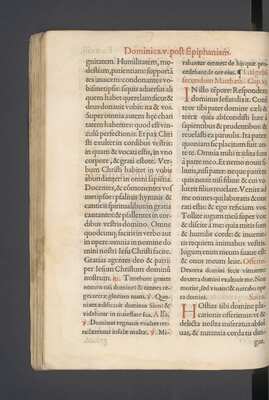 Dominica.v. post Epiphaniam.
gnitatem. Humilitatem, mo-
destiam, patientiam: supportã
tes inuicem: condonantes vo-
bismetipsis: siquis aduersus ali
quem habet querelam: sicut &
dominus vobis: ita & vos.
Super omnia autem hęc chari
tatem habentes: quod est vin-
culũ perfectionis. Et pax Chri
sti exultet in cordibus vestris:
in qua & vocati estis, in vno
corpore, & grati estote. Ver-
bum Christi habitet in vobis
abundanter: in omni sapiẽtia.
Docentes, & commonentes vos
metipsos: psalmis hymnis &
canticis spiritualibus in gratia
cantantes & psallentes in cor-
dibus vestris domino. Omne
quodcunq; facitis in verbo aut
in opere: omnia in nomine do
mini nostri Iesu Christi facite.
Gratias agentes deo & patri
per Iesum Christum dominũ
nostrum. Timebunt gentes
nomen tuũ domine: & omnes re-
ges terrę gloriam tuam. Quo-
niam ędificauit dominus Sion: &
videbitur in maiestate sua. Alla.
Dominus regnauit exultet ter-
ra: lætentur insulæ multæ. Mi-
rabantur omnes de his: quæ pro
cedebant de ore eius.
secundum Matthæũ.
IN illo tẽpore: Respondens
dominus Iesus dixit. Confi-
teor tibi pater domine cœli &
terræ: quia abscondisti hæc a
sapientibus & prudentibus &
reuelasti ea paruulis. Ita pater:
quoniam sic placitum fuit an-
te te. Omnia mihi tradita sunt
a patre meo. Et nemo nouit fi
lium, nisi pater: neque patrem
quis nouit nisi filius: & cui vo
luerit filius reuelare. Venite ad
me omnes qui laboratis & one
rati estis: & ego reficiam vos.
Tollite iugum meũ super vos:
& discite a me quia mitis sum
& humilis corde: & inuenie-
tis requiem animabus vestris.
Iugum enim meum suaue est:
& onus meum leue.
Dextera domini fecit virtutem:
dextera domini exaltauit me. Non
moriar, sed viuam: & narrabo ope
ra domini.
HOstias tibi domine pla-
cationis offerimus: vt &
delicta nostra miseratus absol-
uas: & nutantia corda tu diri-
gas.